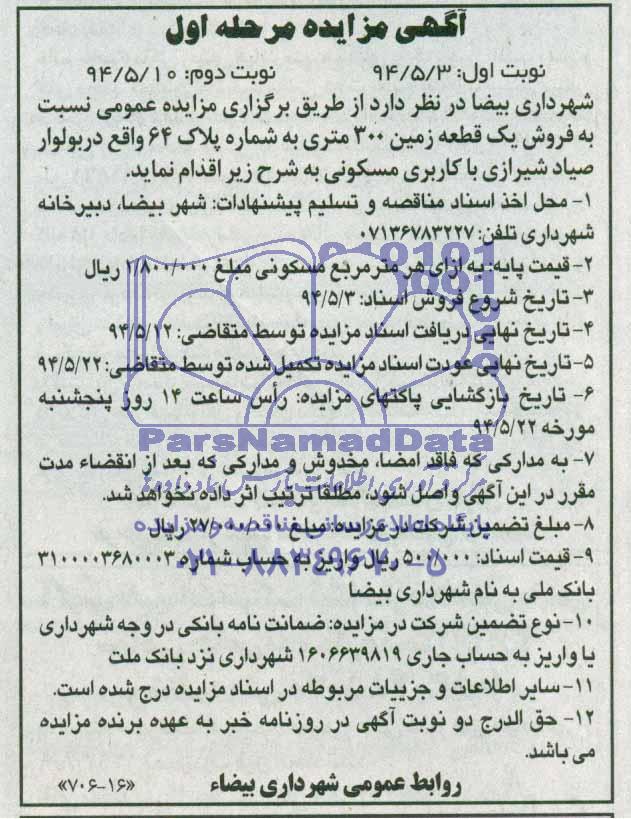 آگهی مزایده مرحله اول
نوبت اول: ۹۴/۵/۳ نوبت دوم: ۹۴/۵/۱۰
شهرداری بیضا در نظر دارد از طریق برگزاری مزایده عمومی نسبت
به فروش یک قطعه زمین ۳۰۰ متری به شماره پلاک ۶۴ واقع دربولوار
صیاد شیرازی با کاربری مسکونی به شرح زیر اقدام نماید.
۱- محل اخذ اسناد مناقصه و تسلیم پیشنهادات: شهر بیضا، دبیرخانه
شهرداری تلفن: ۰۷۱۳۶۷۸۳۲۲۷
۲- قیمت پایه: به ازای هر متر مربع مسکونی مبلغ ۱/۸۰۰/۰۰۰ ریال
۳- تاریخ شروع فروش اسناد: ۹۴/۵/۳
۴- تاریخ نهایی دریافت اسناد مزایده توسط متقاضی: ۹۴/۵/۱۲
۵- تاریخ نهایی عودت اسناد مزایده تکمیل شده توسط متقاضی: ۹۴/۵/۲۲
۶- تاریخ بازگشایی پاکتهای مزایده: رأس ساعت ۱۴ روز پنجشنبه
مورخه ۹۴/۵/۲۲
ParsNamadData
۷- به مدارکی که فاقد امضا، مخدوش و مدارکی که بعد از انقضاء مدت
مقرر در این آگهی واصل شود، مطلقا ترتیب اثر داده نخواهد شد.
۸- مبلغ تضمین شرکت در مزایده: مبلغ ۲۷/۰۰۰/۰۰۰ ریال
۹- قیمت اسناد: ۵۰۰/۰۰۰ ریال واریز به حساب شماره ۳۱۰۰۰۰۳۶۸۰۰۰۳
۰۲۱-۸۸۳۴۹۶۷۰-۵
بانک ملی به نام شهرداری بیضا
۱۰- نوع تضمین شرکت در مزایده: ضمانت نامه بانکی در وجه شهرداری
یا واریز به حساب جاری ۱۶۰۶۶۳۹۸۱۹ شهرداری نزد بانک ملت
۱۱- سایر اطلاعات و جزییات مربوطه در اسناد مزایده درج شده است.
۱۲- حق الدرج دو نوبت آگهی در روزنامه خبر به عهده برنده مزایده
می باشد.
روابط عمومی شهرداری بیضاء «۷۰۶-۱۶»